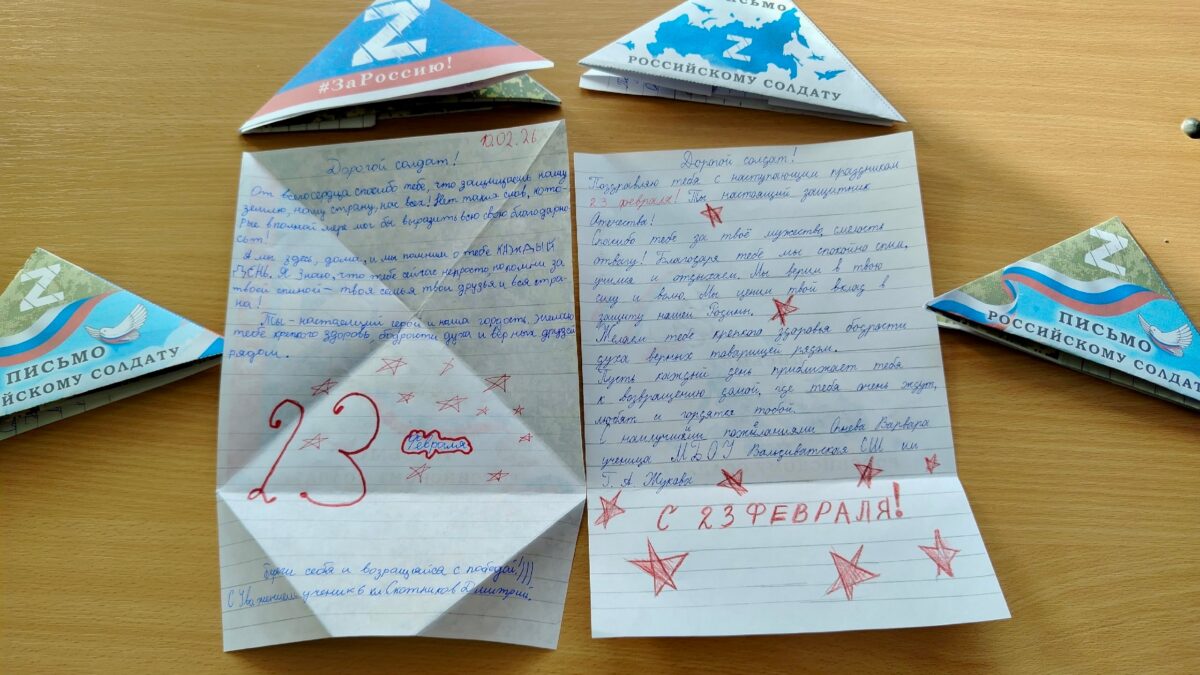 Z
#ЗаРоссию!
ПИСЬМО
Z
РОССИЙСКОМУ СОЛДАТУ
Z
ПИСЬМО
ЙСКОМУ СОЛДАТУ
12.02.26
Дорогой солдат!
От всего сердца спасибо тебе, что защищаешь нашу
землю, нашу страну, нас всех! Нет таких слов, кото-
рые в полной мере мог бы выразить всю свою благодарно-
сьт!
А мы здесь, дома, и мы помним о тебе КАЖДЫЙ
Я знаю, что тебе сейчас непросто, но помни за
твоей спиной – твоя семья твои друзья и вся стра-
на!
Ты – настоящий герой и наша гордость. Желаю
тебе крепкого здоровь, бодрости духа и верных друзей
рядом.
23 Февраля
береги себя и возращяйся с победой!)))
С Уважением ученик 6 кл Скотников Дмитрий.
Дорогой солдат!
Поздравляю тебя с наступающим праздником
23 февраля! Ты настоящий защитник
Отечества!
Спасибо тебе за твоё мужество, смелость
отвагу! Благодаря тебе мы спокойно спим,
учимся и отдыхаем. Мы верим в твою
силу и волю. Мы ценим твой вклад в
защиту нашей Родины.
Желаем тебе крепкого здоровья бодрости
духа верных товарищей рядом.
Пусть каждый день приближает тебя
к возвращению домой, где тебя очень ждут,
любят и гордятся тобой.
С наилучшими пожеланиями Варвара
ученица МБОУ СШ им
Г. А. Жукова
С 23 ФЕВРАЛЯ!
Z
ПИСЬМО
РОССИЙСКОМУ СОЛДАТУ